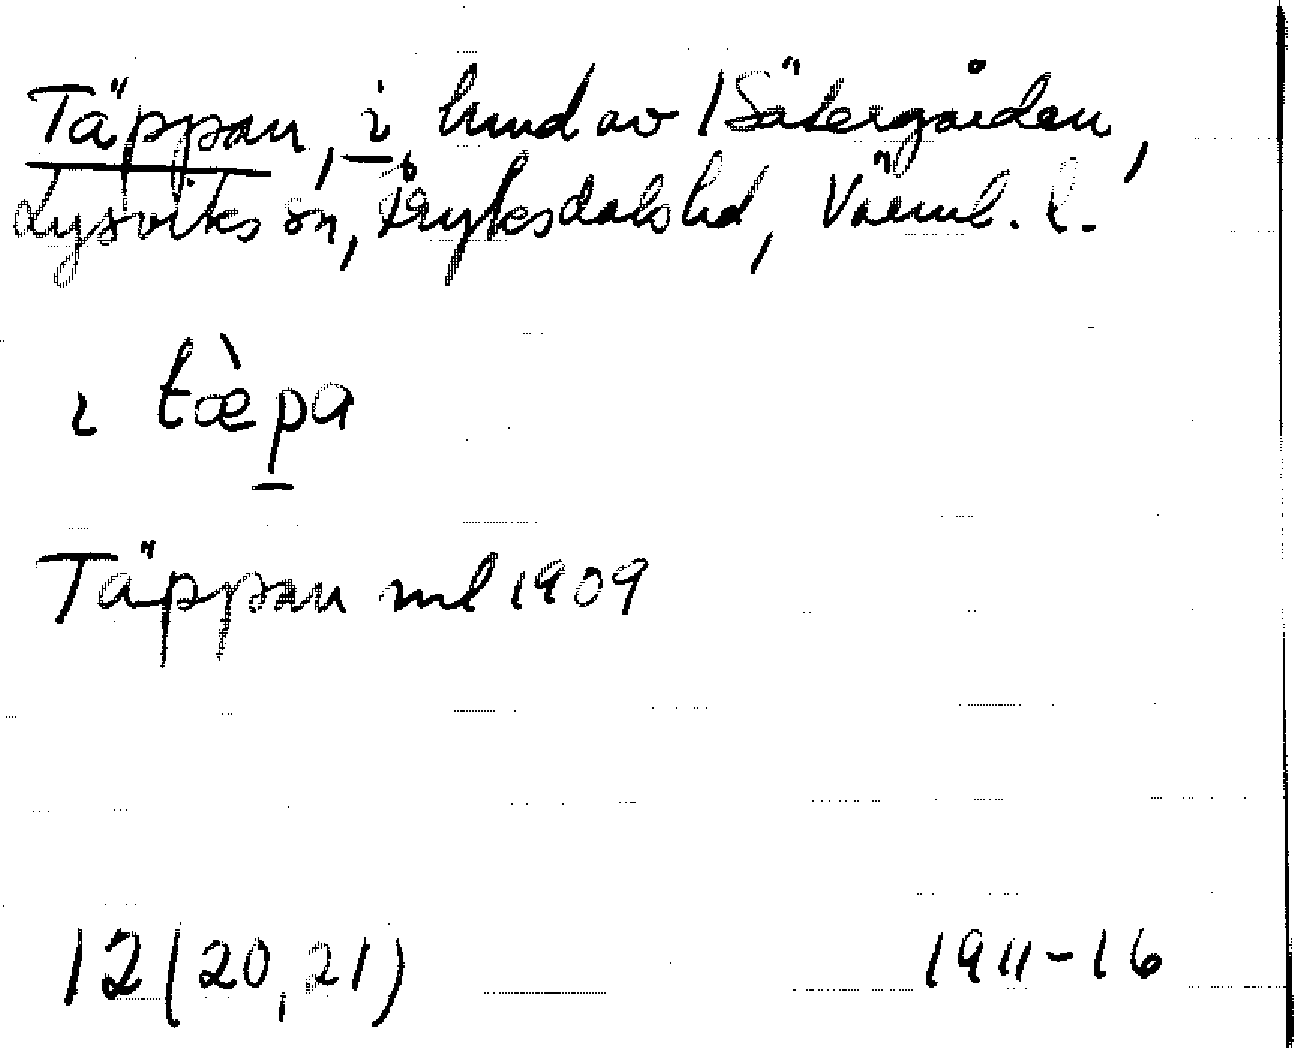 Täppan, i, hmd av 1 Sätergården,
Lysviks sn, Fryksdals hd, Värml. l.
ı tæ̀pa
Täppan ml 1909
12 (20, 21) 1911-16